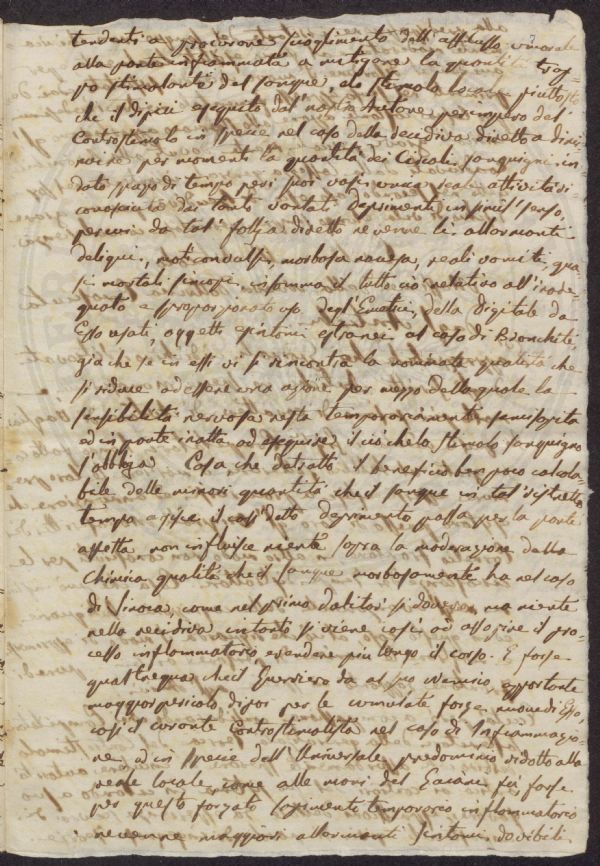 tendenti a procurare scioglimento dell'afflusso umorale
alla parte infiammata a mitigare la quantità trop-
po stimolante del sangue, e lo stimolo locale, piuttosto
che il dipiù eseguito dal nostro Autore per impero del
Controstimolo in specie nel caso della recidiva diretto a dimi-
nuire per momenti la quantità dei Circoli sanguigni in
dato spazo di tempo pei suoi vasi,
conosciute dai tanto vantati deprimenti in simil senso,
per cui da tal' follia diretto ne venne li allarmanti
deliqui, moti convulsi, morbosa nausea, reali vomiti, qua-
si mortali sincopi, insomma il tutto ciò relativo all'inade-
quato e sproporzionato uso degl'Emetici, della Digitale da
Esso usati, oggetti e sintomi estranei al caso di Bronchite
già che se in essi vi si rincontra la nominata qualità che
si riduce ad essere una azione per mezzo della quale la
sensibilità nervosa resta temporariamente
ed in parte inatta ad eseguire il ciò che lo stimolo sanguigno
l'obbliga. Cosa che detratto il benefico ben poco calcola-
bile delle minori quantità che il sangue in tal ristretto
tempo agisce il così detto deprimento passa per la parte
affetta non influisce niente sopra la moderazione della
Chimica qualità che il sangue morbosamente ha nel caso
di Sinoca, come nel primo si doveva, ma niente
nella recidiva intanto si viene così ad assopire il pro-
cesso inflammatorio e rendere più lungo il corso. E forse
qual tregua che il Guerriero da al suo nemico, apportante
maggior pericolo di poi per le cumulate forze nuove di Esso,
così il curante Controstimolista nel caso di Infiammagio-
ne, ed in specie dell'Universale predominio ridotto alla
reale locale, come alle mani del fù forse
per questo forzato sopimento temporario inflammatorio
ne venne maggiori allarmanti sintomi dovibili